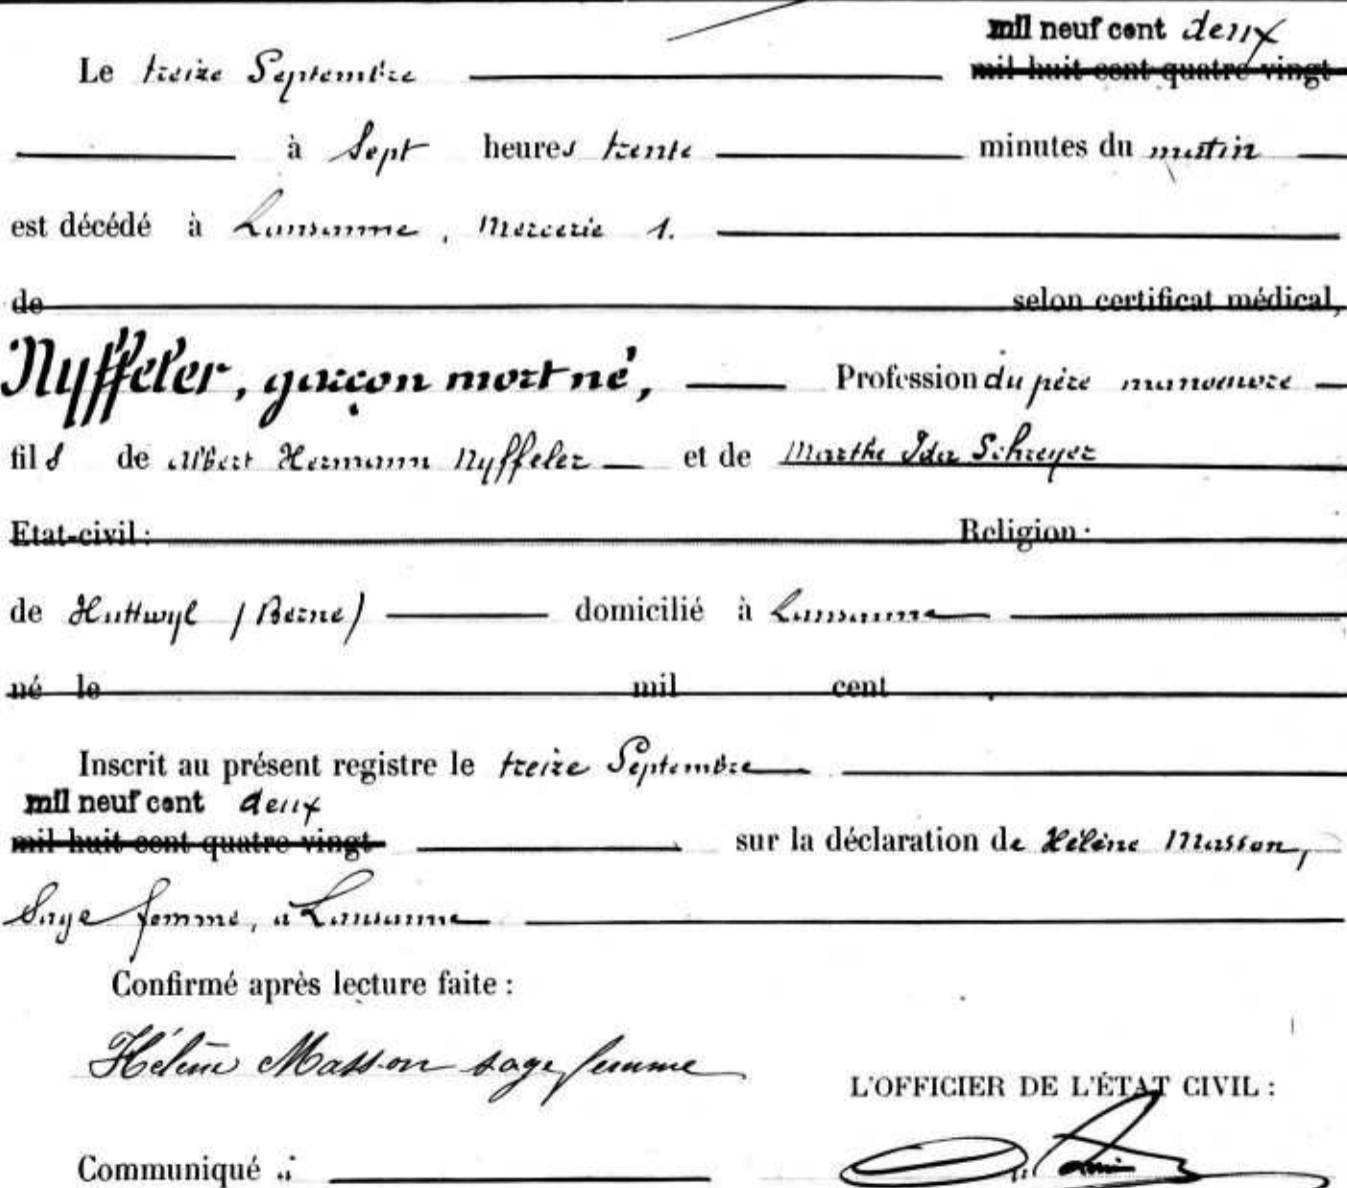 mil neuf cent deux
Le treize Septembre mil huit cent quatre vingt
à Sept heures trente minutes du matin
est décédé à Lausanne, Mercerie 1.
de selon certificat médical,
Nyffeler, garçon mort né, Profession du père manoeuvre
fils de Albert Hermann Nyffeler et de Marthe Ida Schreyer
Etat-civil : Religion :
de Huttwyl (Berne) domicilié à Lausanne
né le mil cent
Inscrit au présent registre le treize Septembre
mil neuf cent deux
mil huit cent quatre vingt sur la déclaration de Hélène Masson,
Sage femme, à Lausanne
Confirmé après lecture faite :
Hélène Masson sage femme
L'OFFICIER DE L'ÉTAT CIVIL :
Communiqué à